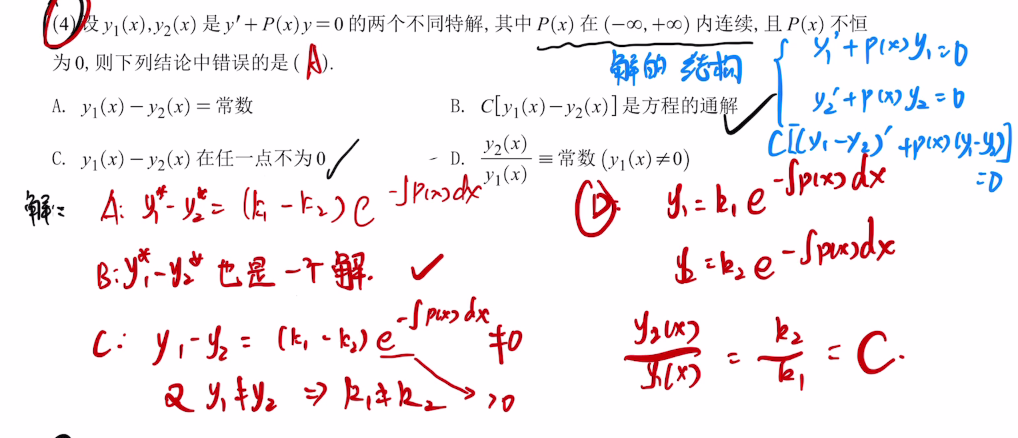 (4) 设 y₁(x),y₂(x) 是 y′+P(x)y=0 的两个不同特解, 其中 P(x) 在 (−∞,+∞) 内连续, 且 P(x) 不恒
为 0, 则下列结论中错误的是 ( A ).
解的结构
y₁′+p(x)y₁=0
y₂′+p(x)y₂=0
C[(y₁−y₂)′+p(x)(y₁−y₂)]
=0
A. y₁(x)−y₂(x)=常数
B. C[y₁(x)−y₂(x)]是方程的通解 ✓
C. y₁(x)−y₂(x)在任一点不为0 ✓
D. y₂(x)/y₁(x)≡常数(y₁(x)≠0)
解:
A: y₁*−y₂*=(k₁−k₂)e^(−∫p(x)dx)
B: y₁*−y₂* 也是一个解. ✓
C: y₁−y₂=(k₁−k₂)e^(−∫p(x)dx)≠0
又 y₁≠y₂ ⇒ k₁≠k₂ >0
D: y₁=k₁e^(−∫p(x)dx)
y₂=k₂e^(−∫p(x)dx)
y₂(x)/y₁(x)=k₂/k₁=C.